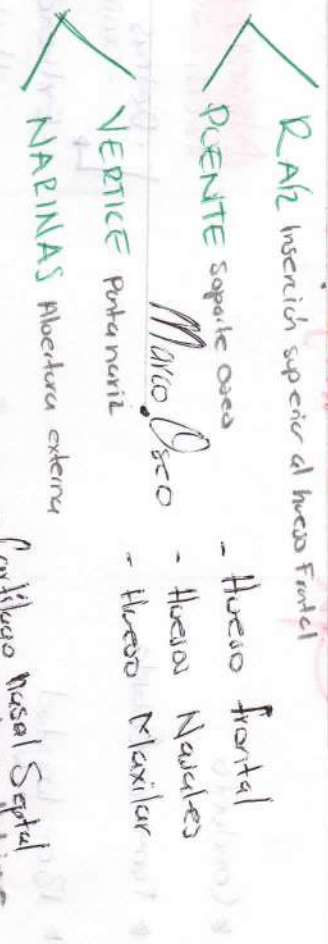 RAÍZ Inserción superior al hueso Frontal
PUENTE soporte oseo
VERTICE Punta nariz
NARINAS Abertura externa
Marco Oseo
- Hueso frontal
- Huesos Nasales
- Hueso Maxilar
Cartílago nasal Septal